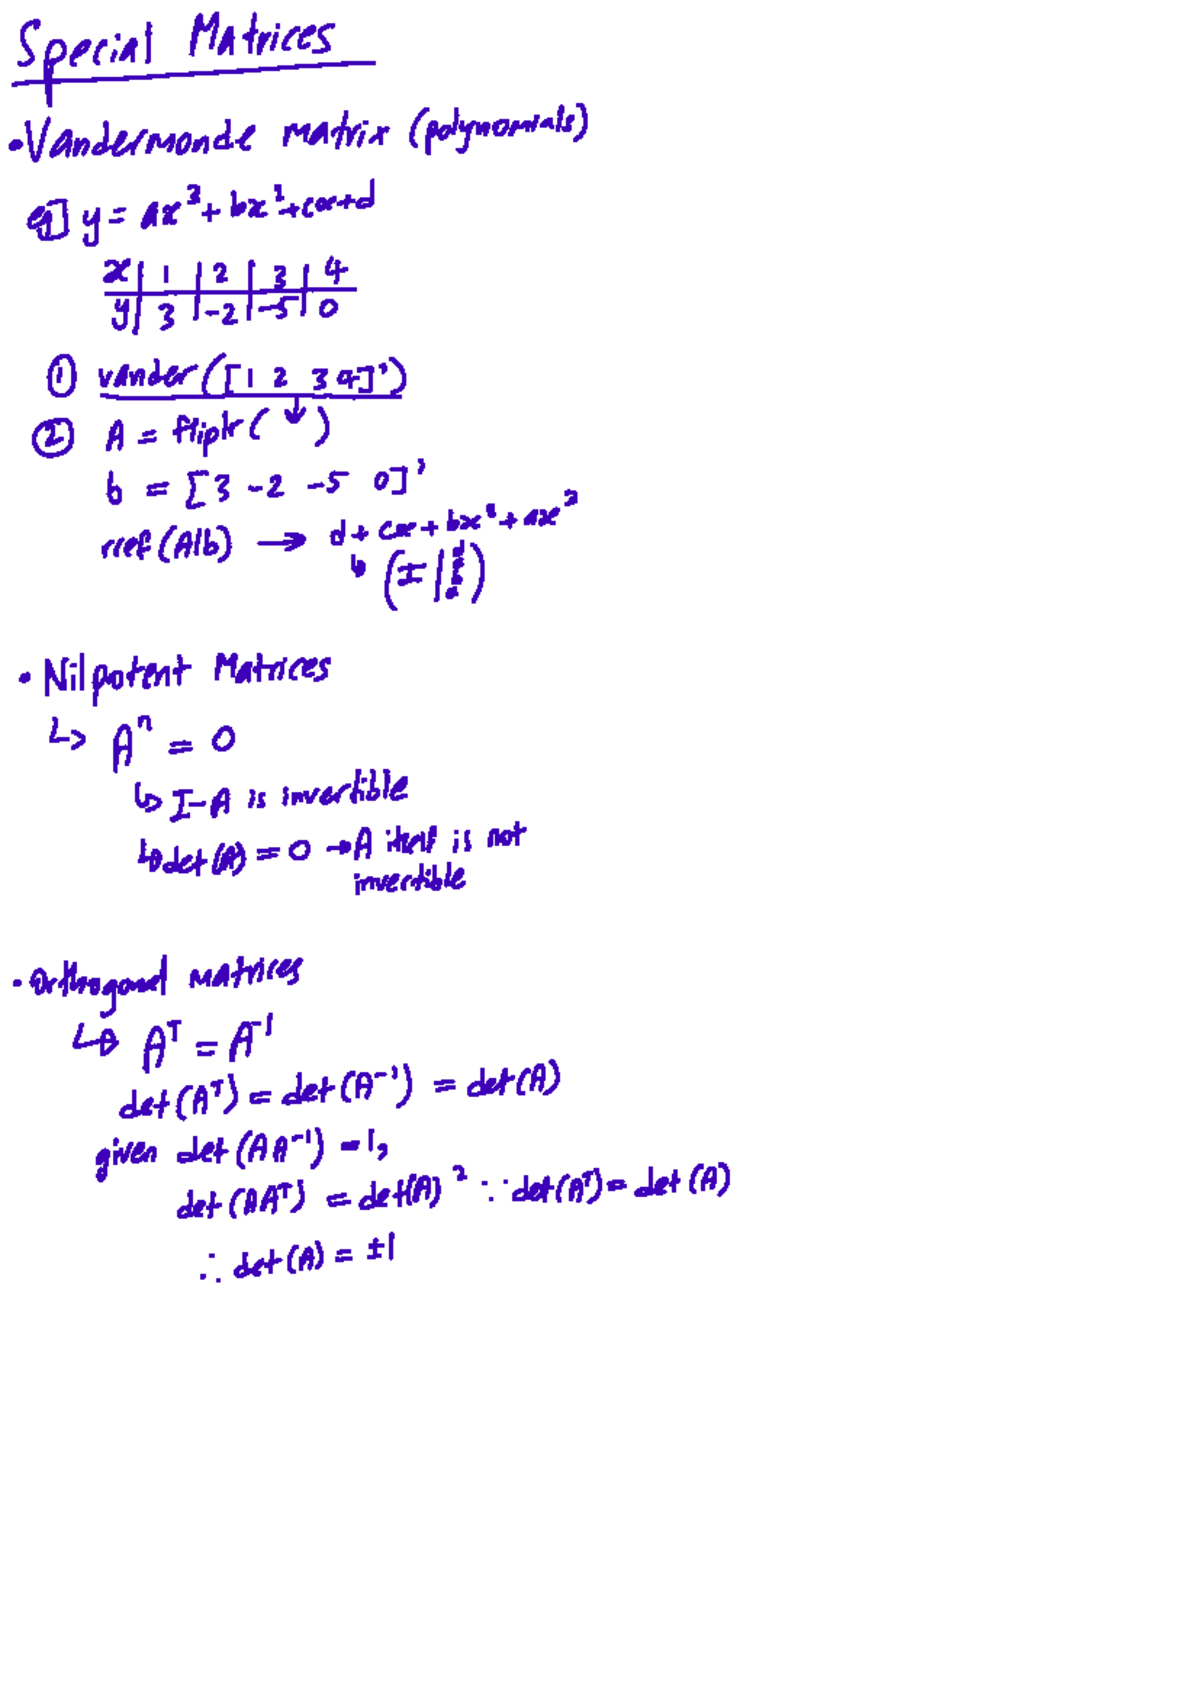 Special Matrices
• Vandermonde matrix (polynomials)
eg] y = ax³ + bx² + cx + d
x | 1 | 2 | 3 | 4
y | 3 | -2 | -5 | 0
① vander([1 2 3 4]')
② A = fliplr( ↓ )
b = [3 -2 -5 0]'
rref(A|b) → d + cx + bx² + ax³
↳ (I | d c b a)
• Nilpotent Matrices
↳ Aⁿ = 0
↳ I-A is invertible
↳ det(A) = 0 → A itself is not
invertible
• Orthogonal matrices
↳ Aᵀ = A⁻¹
det(Aᵀ) = det(A⁻¹) = det(A)
given det(AA⁻¹) = 1,
det(AAᵀ) = det(A)² ∵ det(Aᵀ) = det(A)
∴ det(A) = ±1